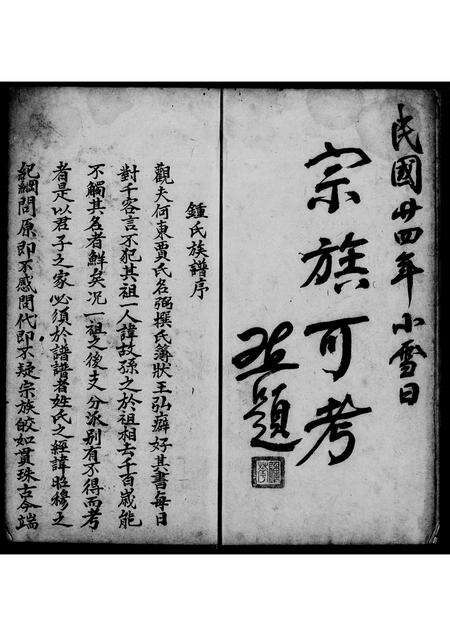 民國廿四年小雪日
宗族可考
題
鍾氏族譜序
觀夫何東賈氏名弼撰氏簿狀王弘癖好其書每日
對千客言不犯其祖一人諱故孫之於祖相去千百歲能
不觸其名者鮮矣况一祖之後支分派别有不得而考
者是以君子之家必須於譜譜者姓氏之經諱昭穆之
紀綱問原即不惑問代即不疑宗族皎如貫珠古今端